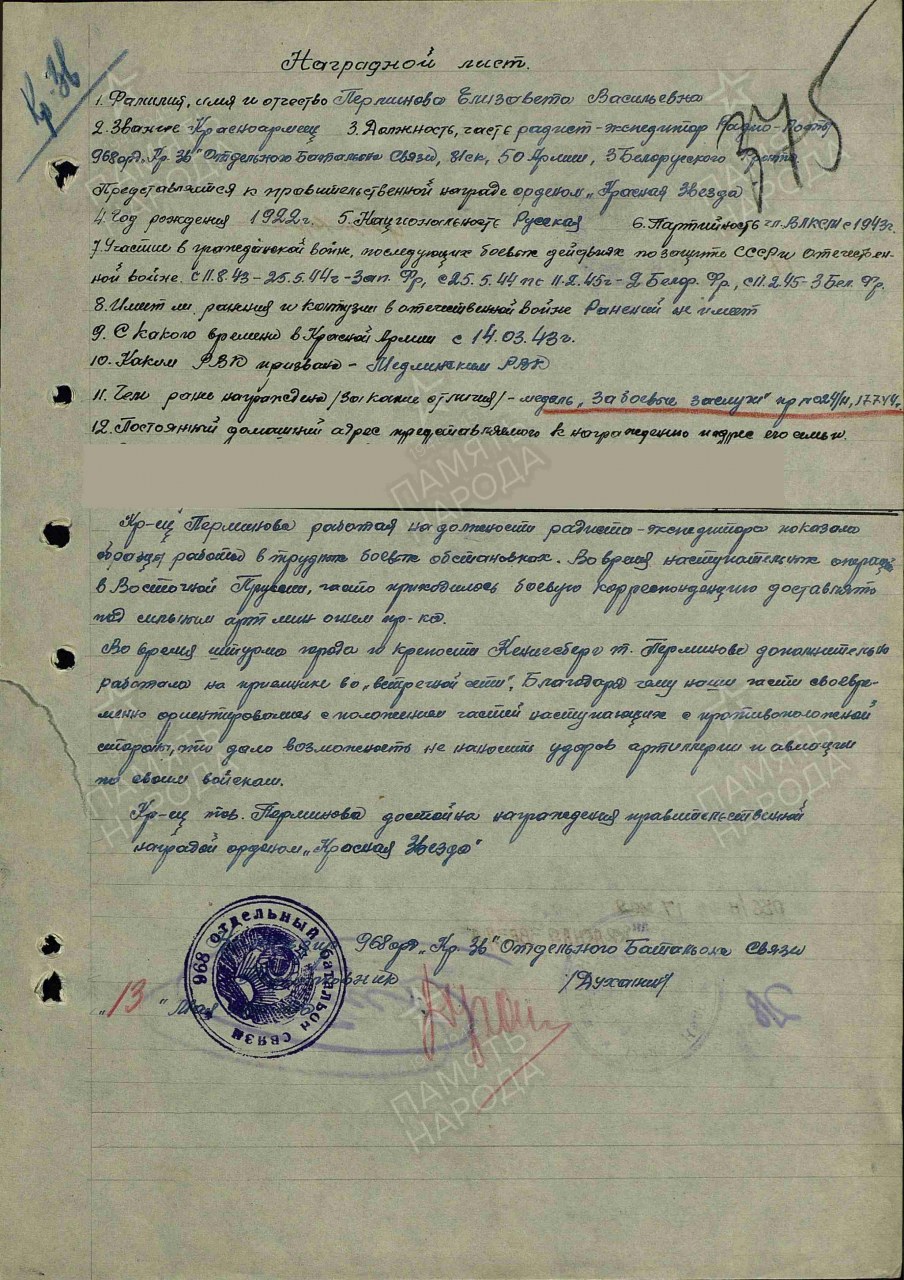 Кр. Зв
375
Наградной лист.
1. Фамилия, имя и отчество Перминова Елизавета Васильевна
2. Звание Красноармеец 3. Должность, часть радист-экспедитор Радио-Роты
968 орд. Кр. Зв" Отдельного Батальона Связи, 81 ск, 50 Армии, 3 Белорусского Фронта
Представляется к правительственной награде орденом „Красная Звезда"
4. Год рождения 1922г. 5. Национальность Русская 6. Партийность чл. ВЛКСМ с 1943г.
7. Участие в гражданской войне, последующих боевых действиях по защите СССР и отечествен-
ной войне. с 11.8.43-25.5.44г-Зап. Фр, с 25.5.44 по 11.2.45г-2 Белор. Фр, с 11.2.45-3 Бел. Фр.
8. Имеет ли ранения и контузии в отечественной войне Ранений не имеет
9. С какого времени в Красной Армии с 14.03.43г.
10. Каким РВК призвана - РВК
11. Чем ранее награждена /за какие отличия/ - медаль „За боевые заслуги" пр № 024/н, 17.7.44г.
12. Постоянный домашний адрес представляемого к награждению и адрес его семьи.
Кр-ец Перминова работая на должности радиста-экспедитора показала
образцы работы в трудных боевых обстановках. Во время наступательных операций
в Восточной Пруссии, часто приходилось боевую корреспонденцию доставлять
под сильным арт мин огнем пр-ка.
Во время штурма города и крепости Кенигсберг т. Перминова дополнительно
работала на приемнике во „встречной сети", Благодаря чему наши части своевре-
менно ориентировались с положением частей наступающих с противоположной
стороны, что дало возможность не наносить ударов артиллерии и авиации
по своим войскам.
Кр-ец тов. Перминова достойна награждения правительственной
наградой орденом „Красная Звезда"
968 орд. „Кр. Зв" Отдельного Батальона Связи
/Духанин/
„13" Мая
968 отдельный батальон связи
ПАМЯТЬ НАРОДА